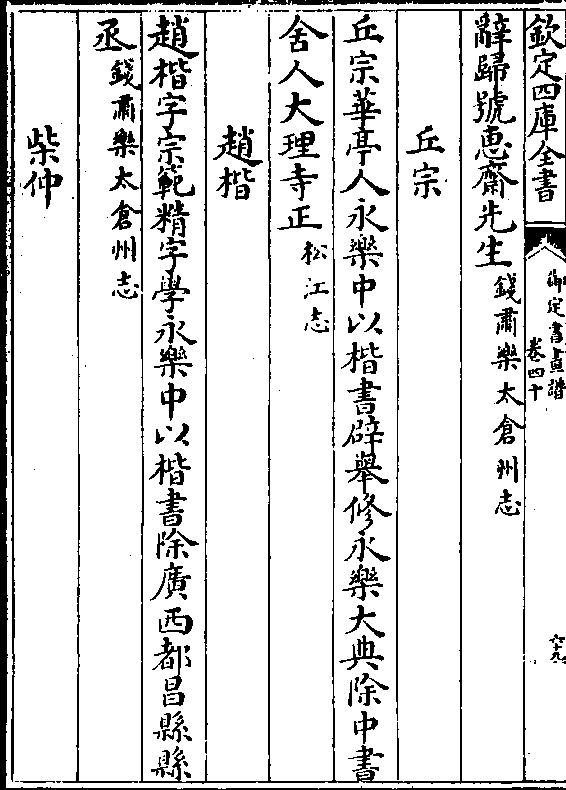 欽定四庫全書
御定書畫譜
卷四十
六十九
辭歸號惠齋先生錢肅樂太倉州志
丘宗
丘宗華亭人永樂中以楷書辟舉修永樂大典除中書
舍人大理寺正松江志
趙楷
趙楷字宗範精字學永樂中以楷書除廣西都昌縣縣
丞錢肅樂太倉州志
柴仲